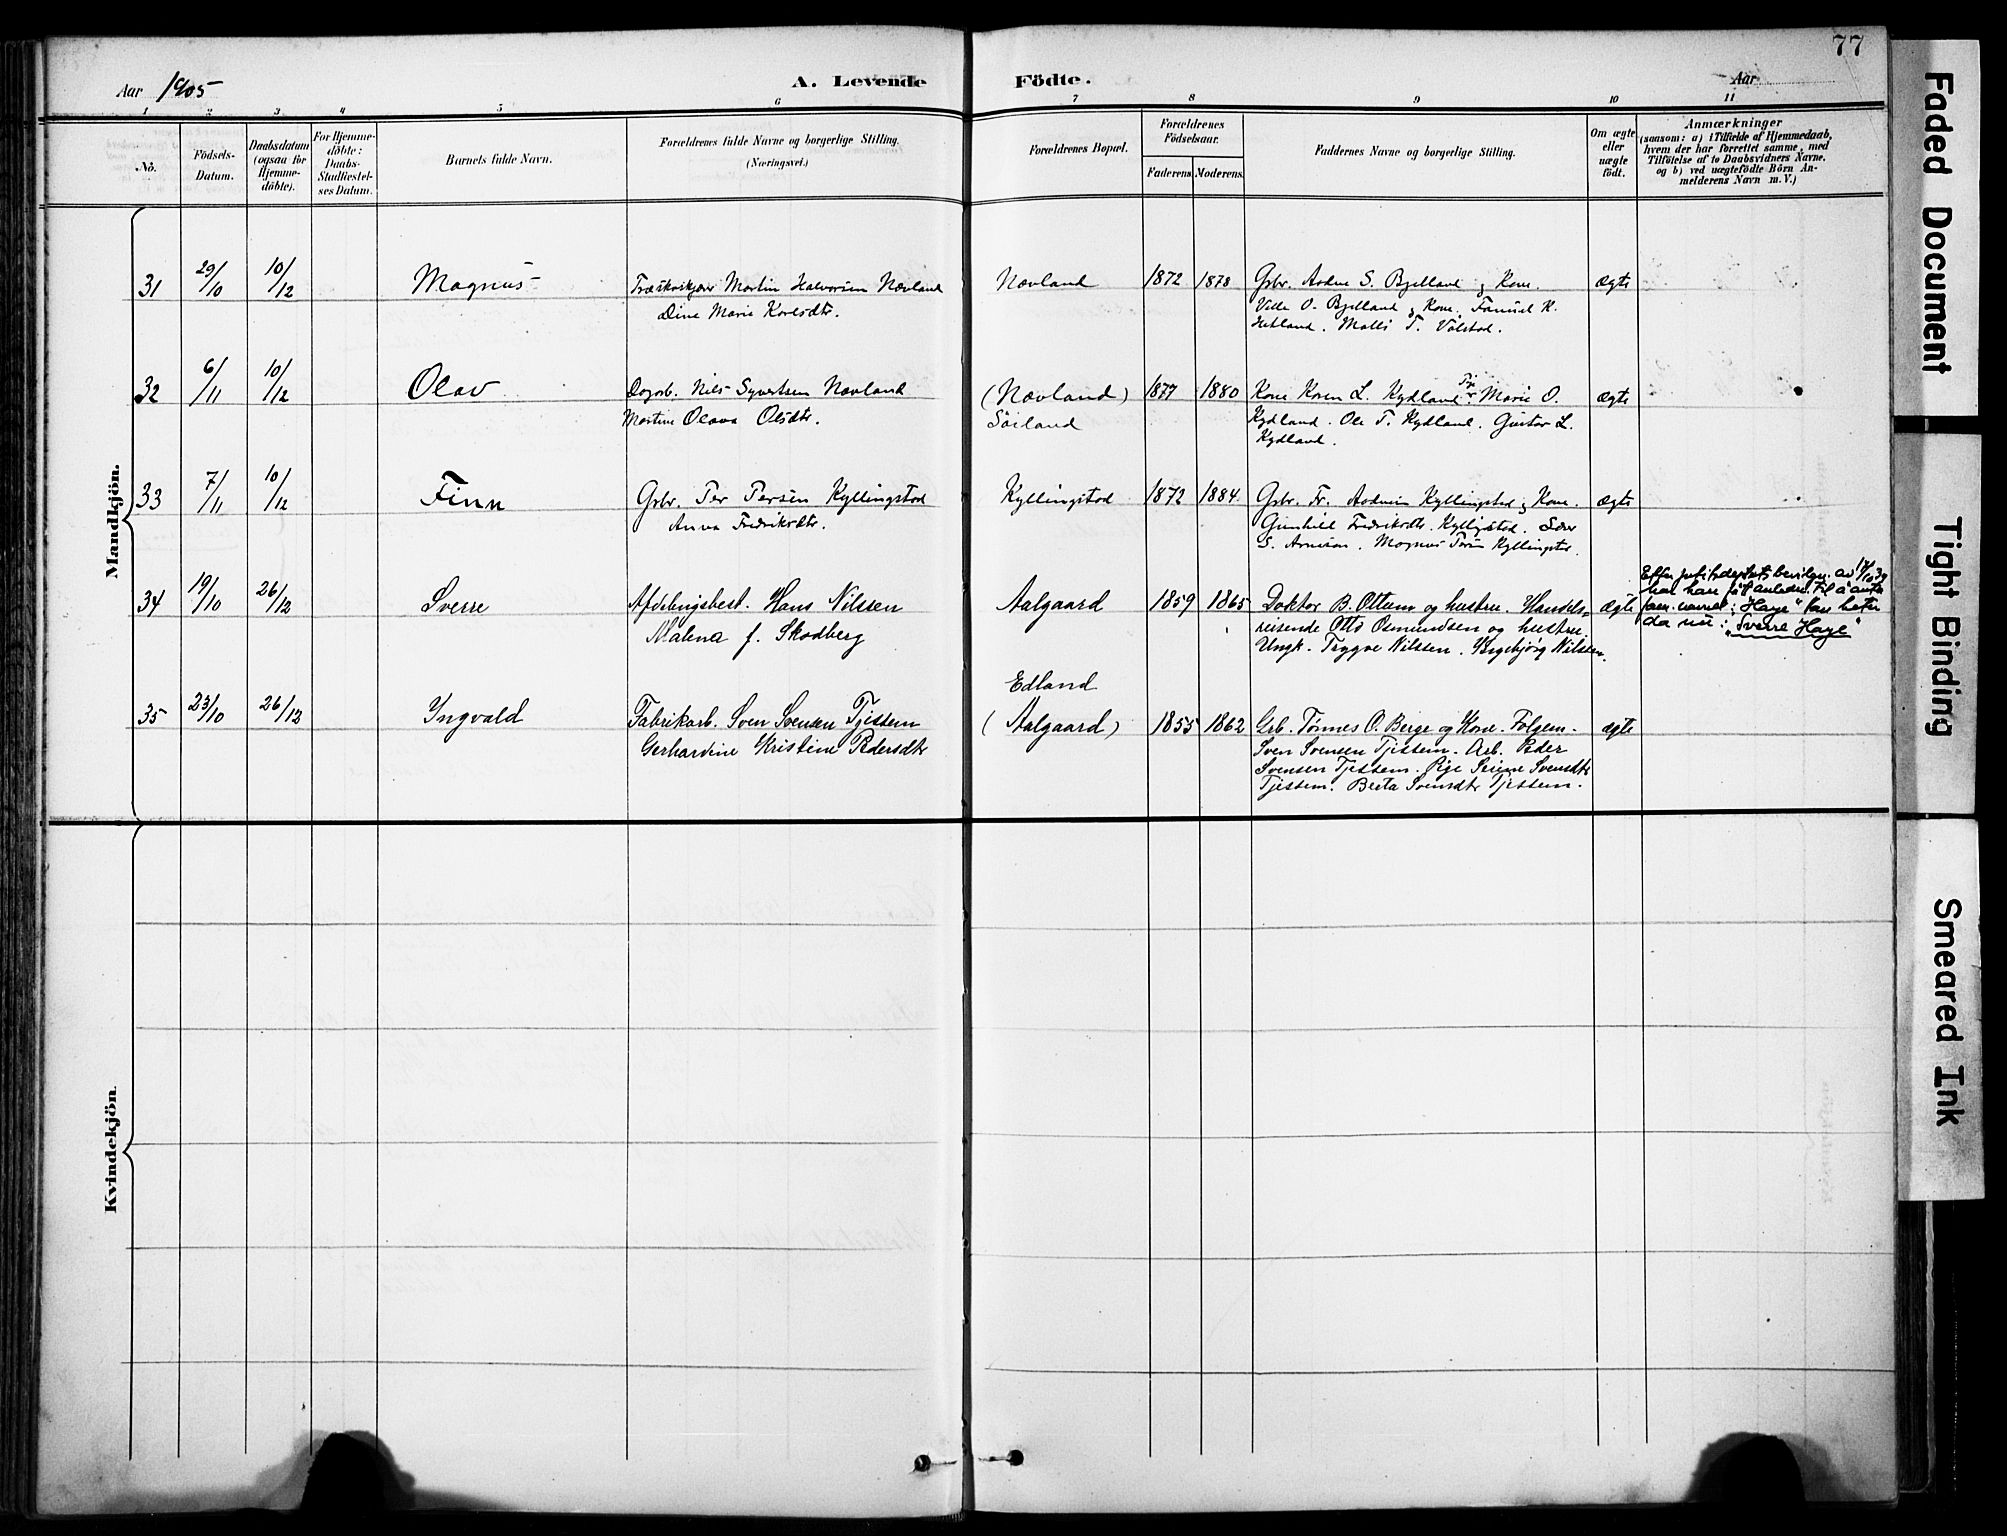 77
Aar 1905
A. Levende
Födte.
Aar
1 2 3 4 5 6 7 8 9 10 11
No.
Födsels-
Datum.
Daabsdatum
(ogsaa for
Hjemme-
döbte).
For Hjemme-
döbte:
Daabs-
Stadfæstel-
ses Datum.
Barnets fulde Navn.
Forældrenes fulde Navne og borgerlige Stilling.
(Næringsvei.)
Forældrenes Bopæl.
Forældrenes
Födselsaar.
Faderens. Moderens.
Faddernes Navne og borgerlige Stilling.
Om ægte
eller
uægte
födt.
Anmærkninger
(saasom: a) i Tilfælde af Hjemmedaab,
hvem der har forrettet samme, med
Tilföielse af to Daabsvidners Navne,
og b) ved uægtefödte Börn An-
melderens Navn m. V.)
Mandkjön.
31 29/10 10/12 Magnus Martin Halvorsen Nævland Nævland 1872 1878 Gbr. Aadne S. Bjelland og Kone. ægte
Dine Marie Karlsdtr.
Ville O. Bjelland og Kone. Samuel K.
Hetland. Malli T. Vålstad.
32 6/11 10/12 Olav Dagarb. Nils Syvertsen Nævland (Nævland) 1877 1880 Kone Karen L. Kydland. Pige Marie O. ægte
Martine Olava Olsdtr. Söiland
Kydland. Ole T. Kydland. Gustav L.
Kydland.
33 7/11 10/12 Finn Gbr. Per Persen Kyllingstad Kyllingstad 1872 1884 Gbr. Fr. Kyllingstad og Kone. ægte
Anna Fredriksdtr.
Gunhild Fredriksdtr. Kyllingstad.
S. Arnesen. Magnus Kyllingstad.
34 19/10 26/12 Sverre Afdelingsbest. Hans Nilssen Aalgaard 1859 1865 Doktor B. Ottum og hustru. Handels- ægte
Malena f. Skadberg
reisende Otto Osmundsen og hustru.
Ungk. Trygve Nilssen. Ingebjørg Nilssen.
Efter justisdep.tets bevilgn. av 17/10 39
har han fåt anledn. til å anta
fam.navnet: "Haye" han heter
da nu: "Sverre Haye"
35 23/10 26/12 Ingvald Fabrikarb. Sven Svensen Tjessem
Edland
(Aalgaard) 1855 1862 Grb. Tønnes O. Berge og Kone. Folgem. ægte
Gerhardine Kristine Pedersdtr
Sven Svensen Tjessem. Arb. Peder
Svensen Tjessem. Pige Serine Svensdtr
Tjessem. Berta Svensdtr Tjessem.
Kvindekjön.
Faded Document
Tight Binding
Smeared Ink